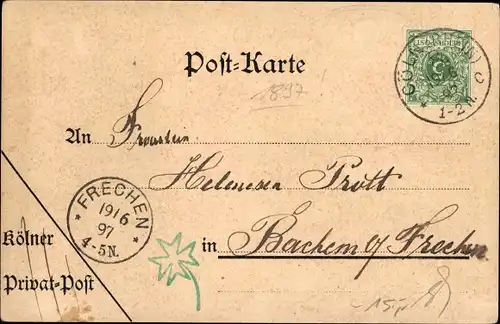 Post-Karte
CÖLN (RHEIN) C
5
97
1-2N.
1897
An Fräulein
Helenesen Trott
FRECHEN
19/6
97
4-5N.
in Bachem b/ Frechen
Kölner
Privat-Post